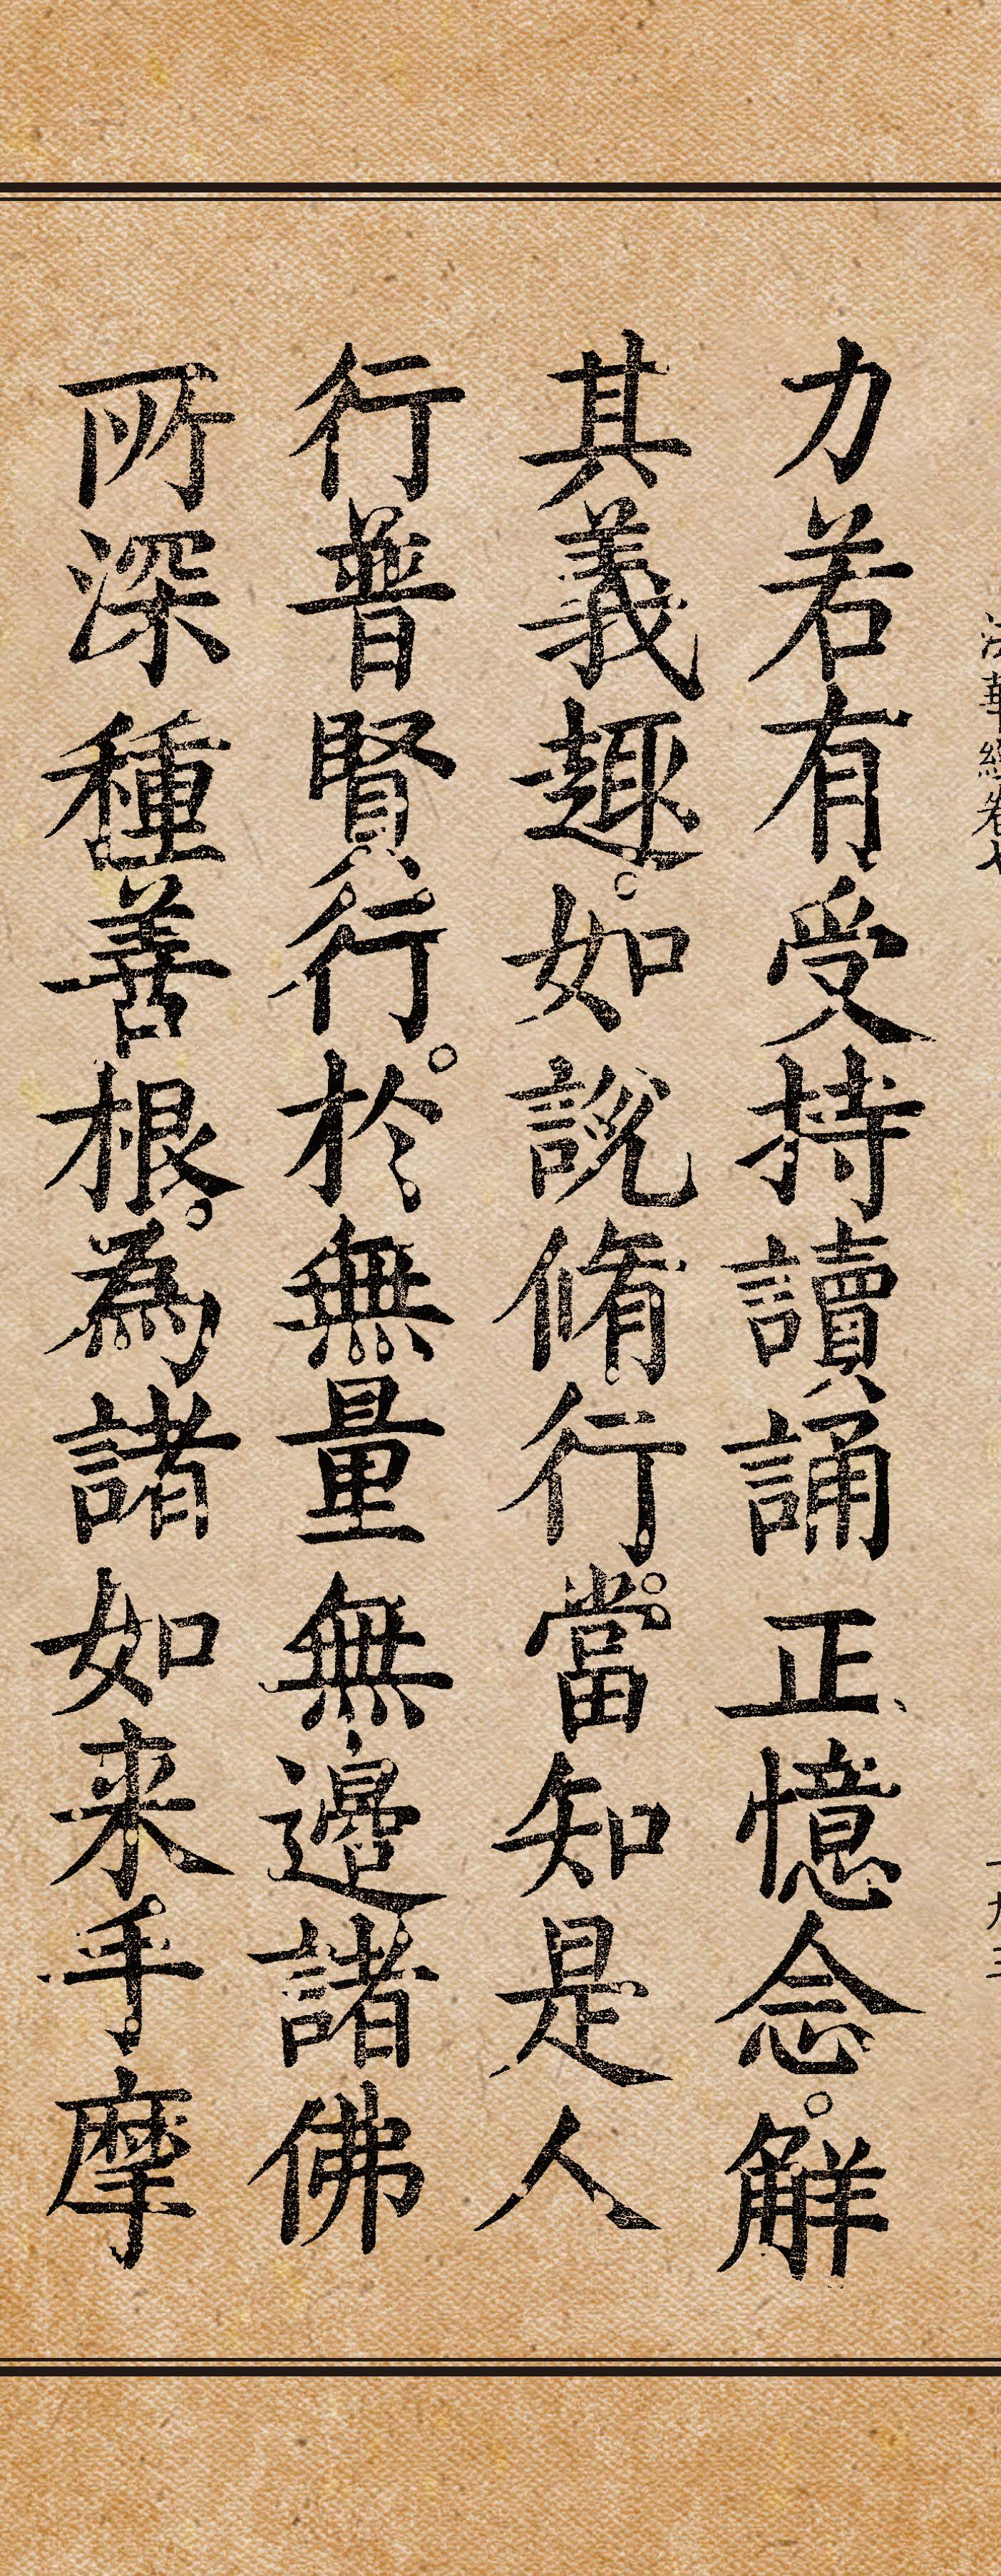 法華經卷七
力若有受持讀誦正憶念。解
其義趣。如說脩行。當知是人
行普賢行。於無量無邊諸佛
所深種善根。為諸如来手摩